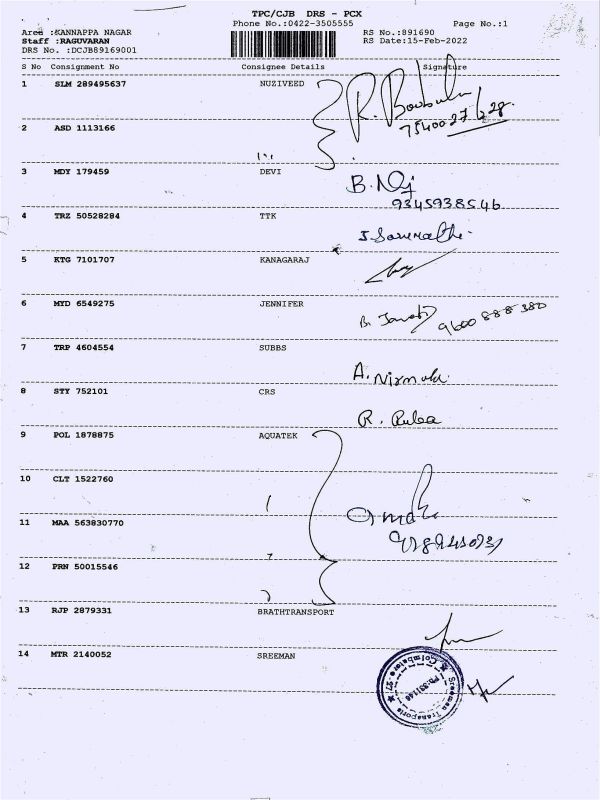 TPC/CJB DRS - PCX
Phone No.:0422-3505555 Page No.:1
Area :KANNAPPA NAGAR RS No.:891690
Staff :RAGUVARAN RS Date:15-Feb-2022
DRS No. :DCJB89169001
S No Consignment No Consignee Details Signature
1 SLM 289495637 NUZIVEED
7540027228
2 ASD 1113166
3 MDY 179459 DEVI
9345938546
4 TRZ 50528284 TTK
5 KTG 7101707 KANAGARAJ
6 MYD 6549275 JENNIFER
9600888380
7 TRP 4604554 SUBBS A. Nirmala
8 STY 752101 CRS R. Ruba
9 POL 1878875 AQUATEK
10 CLT 1522760
11 MAA 563830770
12 PRN 50015546
13 RJP 2879331 BRATHTRANSPORT
14 MTR 2140052 SREEMAN
Sreeman Transports
Coimbatore - 27